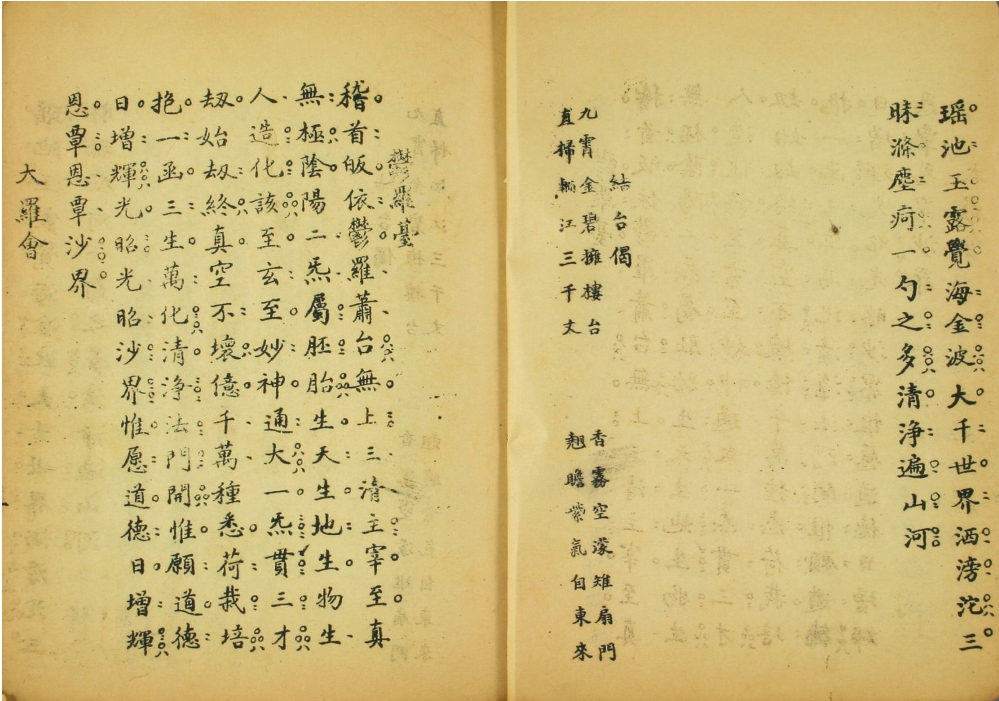 瑶池玉露覺海金波大千世界洒滂沱三
昧滌塵疴一勺之多清浄遍山河
結台偈
九霄金碧擁樓台
香霧空濛雉扇門
直掃 江三千丈
翹瞻紫氣自東來
鬱羅臺
稽首皈依鬱羅蕭台無上三清主宰至真
無極陰陽二炁屬胚胎生天生地生物生
人造化該至玄至妙神通大一炁貫三才
刼始刼終真空不壞億千萬種悉荷栽培
抱一函三生萬化清浄法門開惟願道德
日增輝光昭光昭沙界惟愿道德日增輝
恩覃恩覃沙界
大羅會